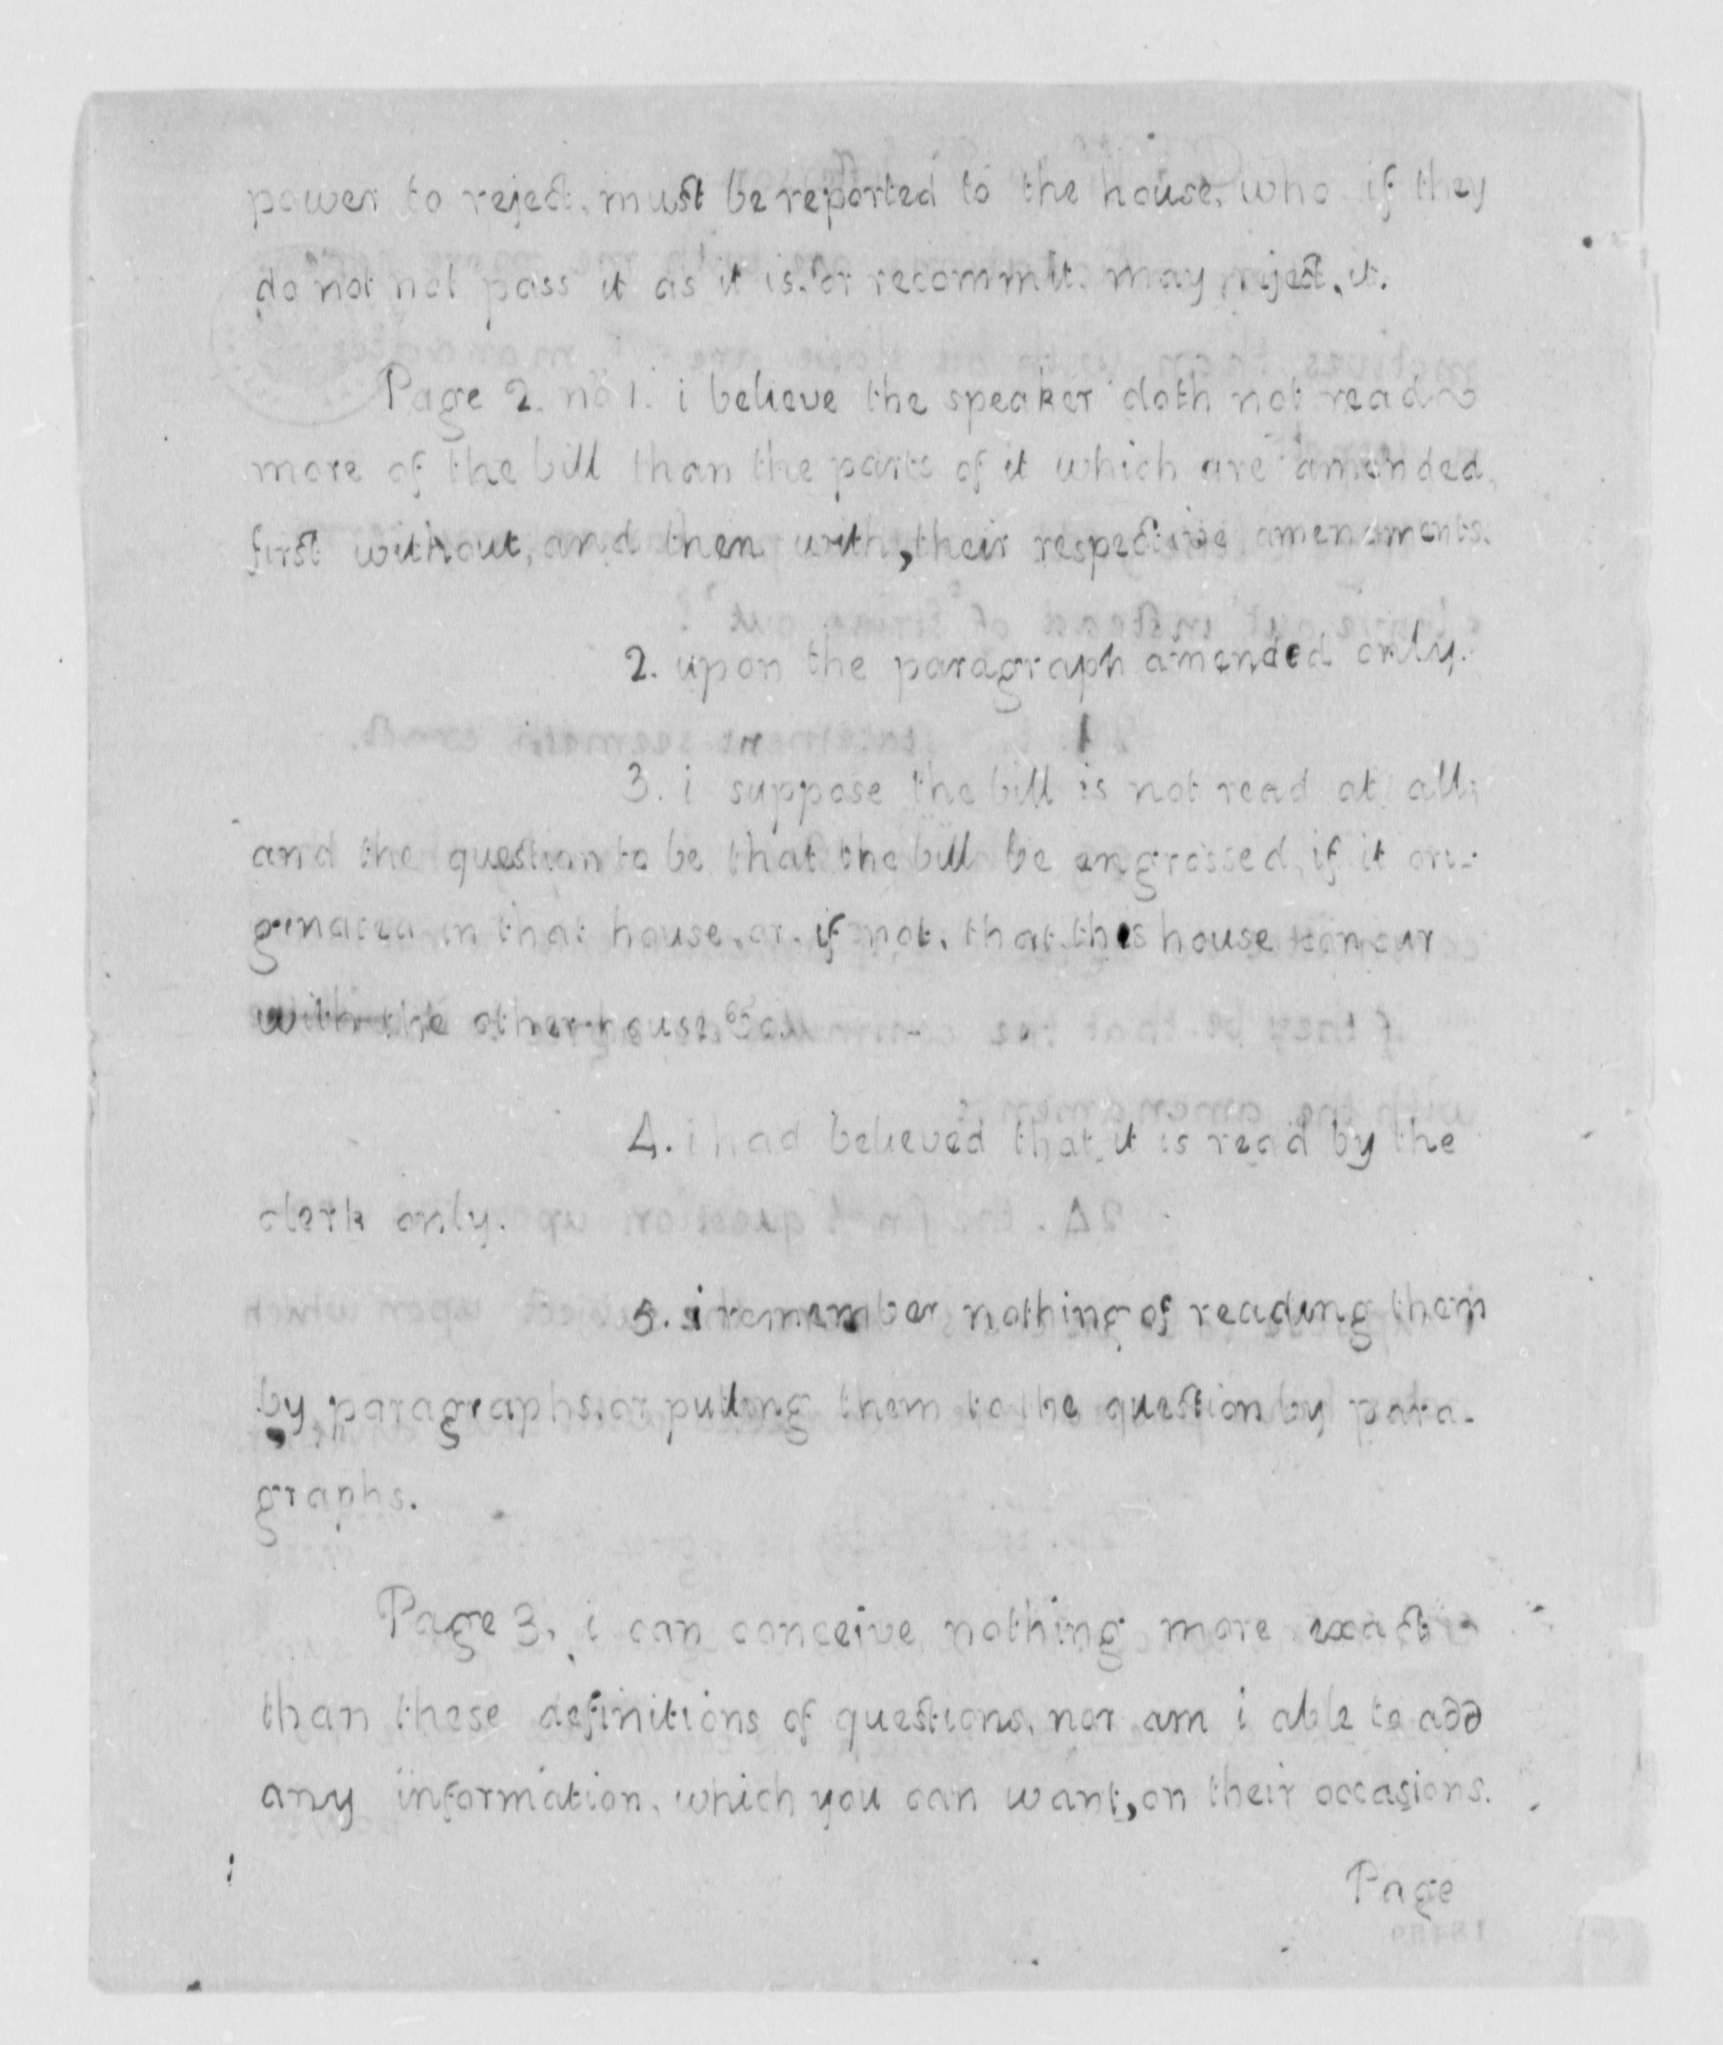 power to reject, must be reported to the house, who if they
do not not pass it as it is, or recommit, may reject, it.
Page 2. no 1. i believe the speaker doth not read
more of the bill than the parts of it which are amended,
first without, and then with, their respective amendments.
2. upon the paragraph amended only.
3. i suppose the bill is not read at all;
and the question to be that the bill be engrossed, if it ori-
ginated in that house, or, if not, that this house concur
with the other house &c.
4. i had believed that it is read by the
clerk only.
5. i remember nothing of reading them
by paragraphs, or putting them to the question by para-
graphs.
Page 3, i can conceive nothing more exact
than these definitions of questions, nor am i able to add
any information, which you can want, on their occasions.
Page